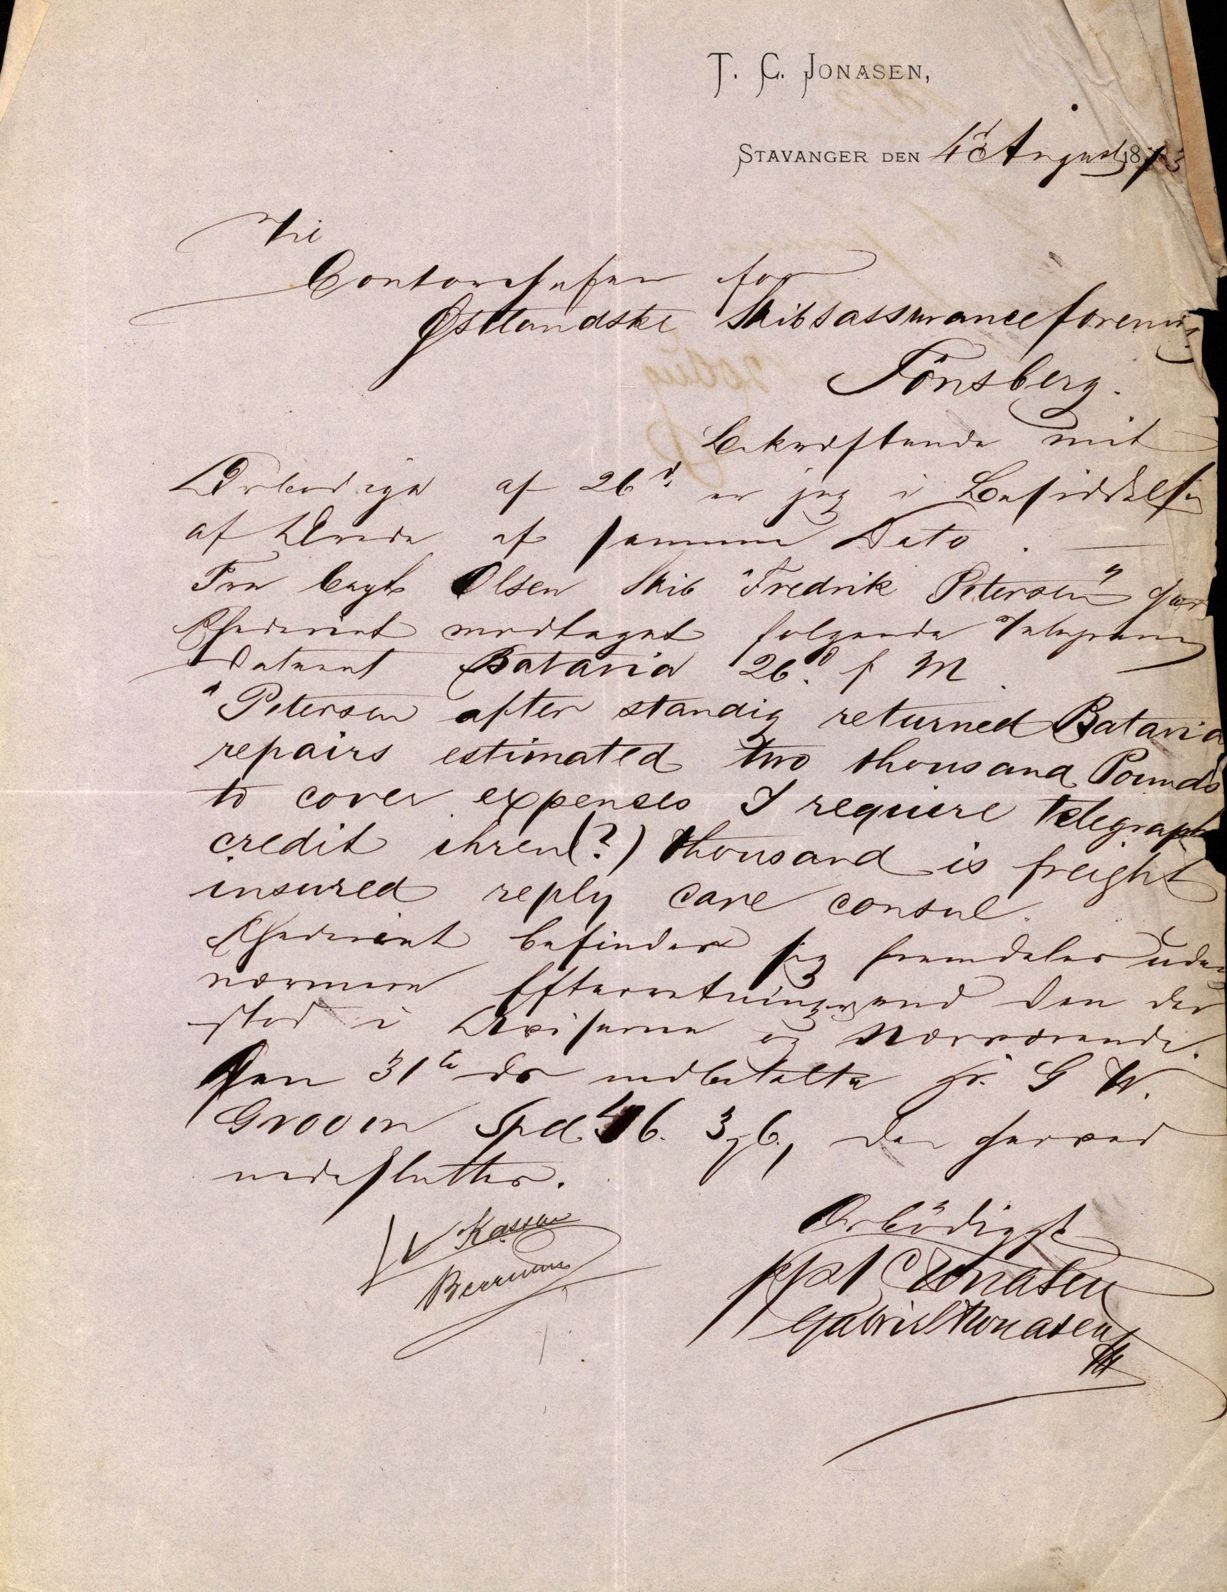 T. C. JONASEN,
STAVANGER DEN 4de August 1873
Til
Contorchefen for
Østlandske Skibsassuranceforening
Tönsberg.
Bekræftende mit
Ærbødige af 26d. er jeg i Besiddelse
af Ærede af samme Dato.
Fra Capt Olsen Skib "Fredrik Petersen" har
Rhederiet modtaget følgende Telegram
dateret Batavia 26d. f M.
"Petersen after standig returned Batavia
repairs estimated two thousand Pounds
to cover expenses I require telegraph
credit ihren(?) thousand is freight
insured reply care consul.
Rhederiet befinder sig fremdeles uden
nærmere Efterretninger end den der
stod i Aviserne og Nærværende.
Den 31te ds indbetalte Hr. G W.
Grooen Spd 46. 3, 6, der herved
indesluttes.
Kassen
Ærbödigst
ppa T C Jonasen
Gabriel Thonasen